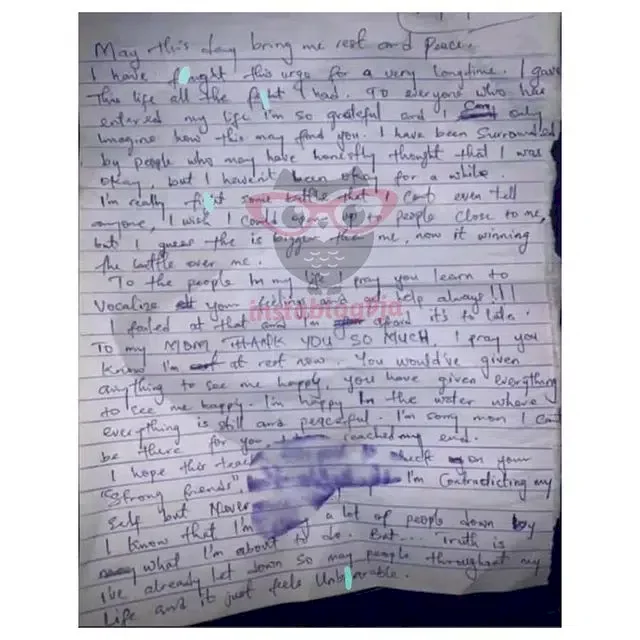 May this day bring me rest and Peace.
I have f ught this urge for a very long time. I gave
This life all the f t I had. To everyone who has
entered my life I'm so grateful and I can only
Imagine how this may find you. I have been Surrounded
by people who may have honestly thought that I was
okay, but I haven't been okay for a while.
I'm really f t some battle that I can't even tell
anyone, I wish I could open up to people close to me,
but I guess the is bigger than me, now it winning
the battle over me.
To the people In my life I pray you learn to
Vocalize your feelings and help always!!!
I failed at that and I'm afraid it's to late.
instablog9ja
To my MOM THANK YOU SO MUCH, I pray you
Know I'm at rest now. You would've given
anything to see me happy, you have given everything
to see me happy. I'm happy In the water where
everything is still and peaceful. I'm sorry mom I can't
be there for you, reached my end.
I hope this teac check on your
"Strong friends", I'm Contradicting my
Self but Never
I know that I'm a lot of people down by
what I'm about to do. But... Truth is
I've already let down so may people throughout my
Life and it just feels Unb arable.